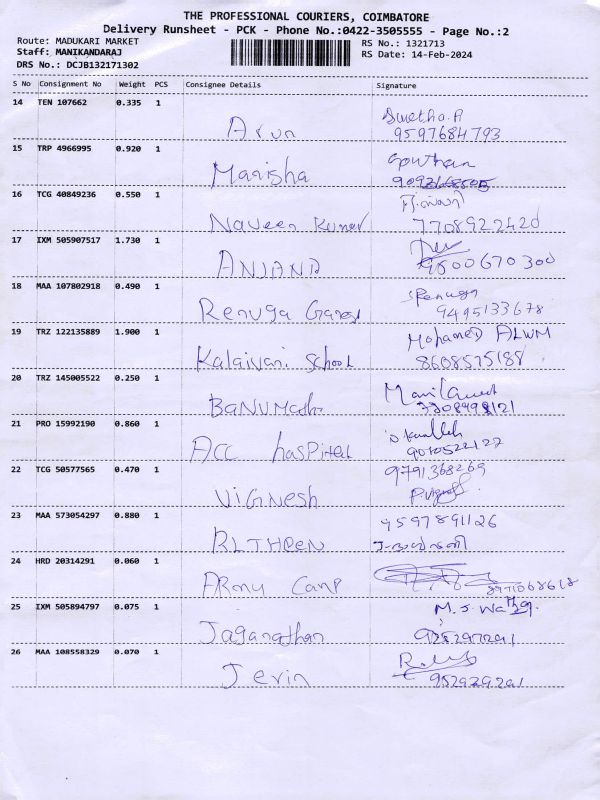 THE PROFESSIONAL COURIERS, COIMBATORE
Delivery Runsheet - PCK - Phone No.:0422-3505555 - Page No.:2
Route: MADUKARI MARKET
RS No.: 1321713
Staff: MANIKANDARAJ
RS Date: 14-Feb-2024
DRS No.: DCJB132171302
S No Consignment No Weight PCS Consignee Details Signature
14 TEN 107662 0.335 1
Arun Swetha.A
9597684793
15 TRP 4966995 0.920 1
Manisha Gowtham
16 TCG 40849236 0.550 1
Naveen Kumar 7708922420
17 IXM 505907517 1.730 1
ANJANA 9500670300
18 MAA 107802918 0.490 1
Renuga Ganesh Renuga
9495133678
19 TRZ 122135889 1.900 1
Kalaivani School MOHAMED
8608575188
20 TRZ 145005522 0.250 1
BANUMathi
21 PRO 15992190 0.860 1
ACC hasPital
22 TCG 50577565 0.470 1
ViGNesh 9791368269
23 MAA 573054297 0.880 1
9597891126
24 HRD 20314291 0.060 1
ARmy Camp
25 IXM 505894797 0.075 1
Jaganathan
26 MAA 108558329 0.070 1
Jevin